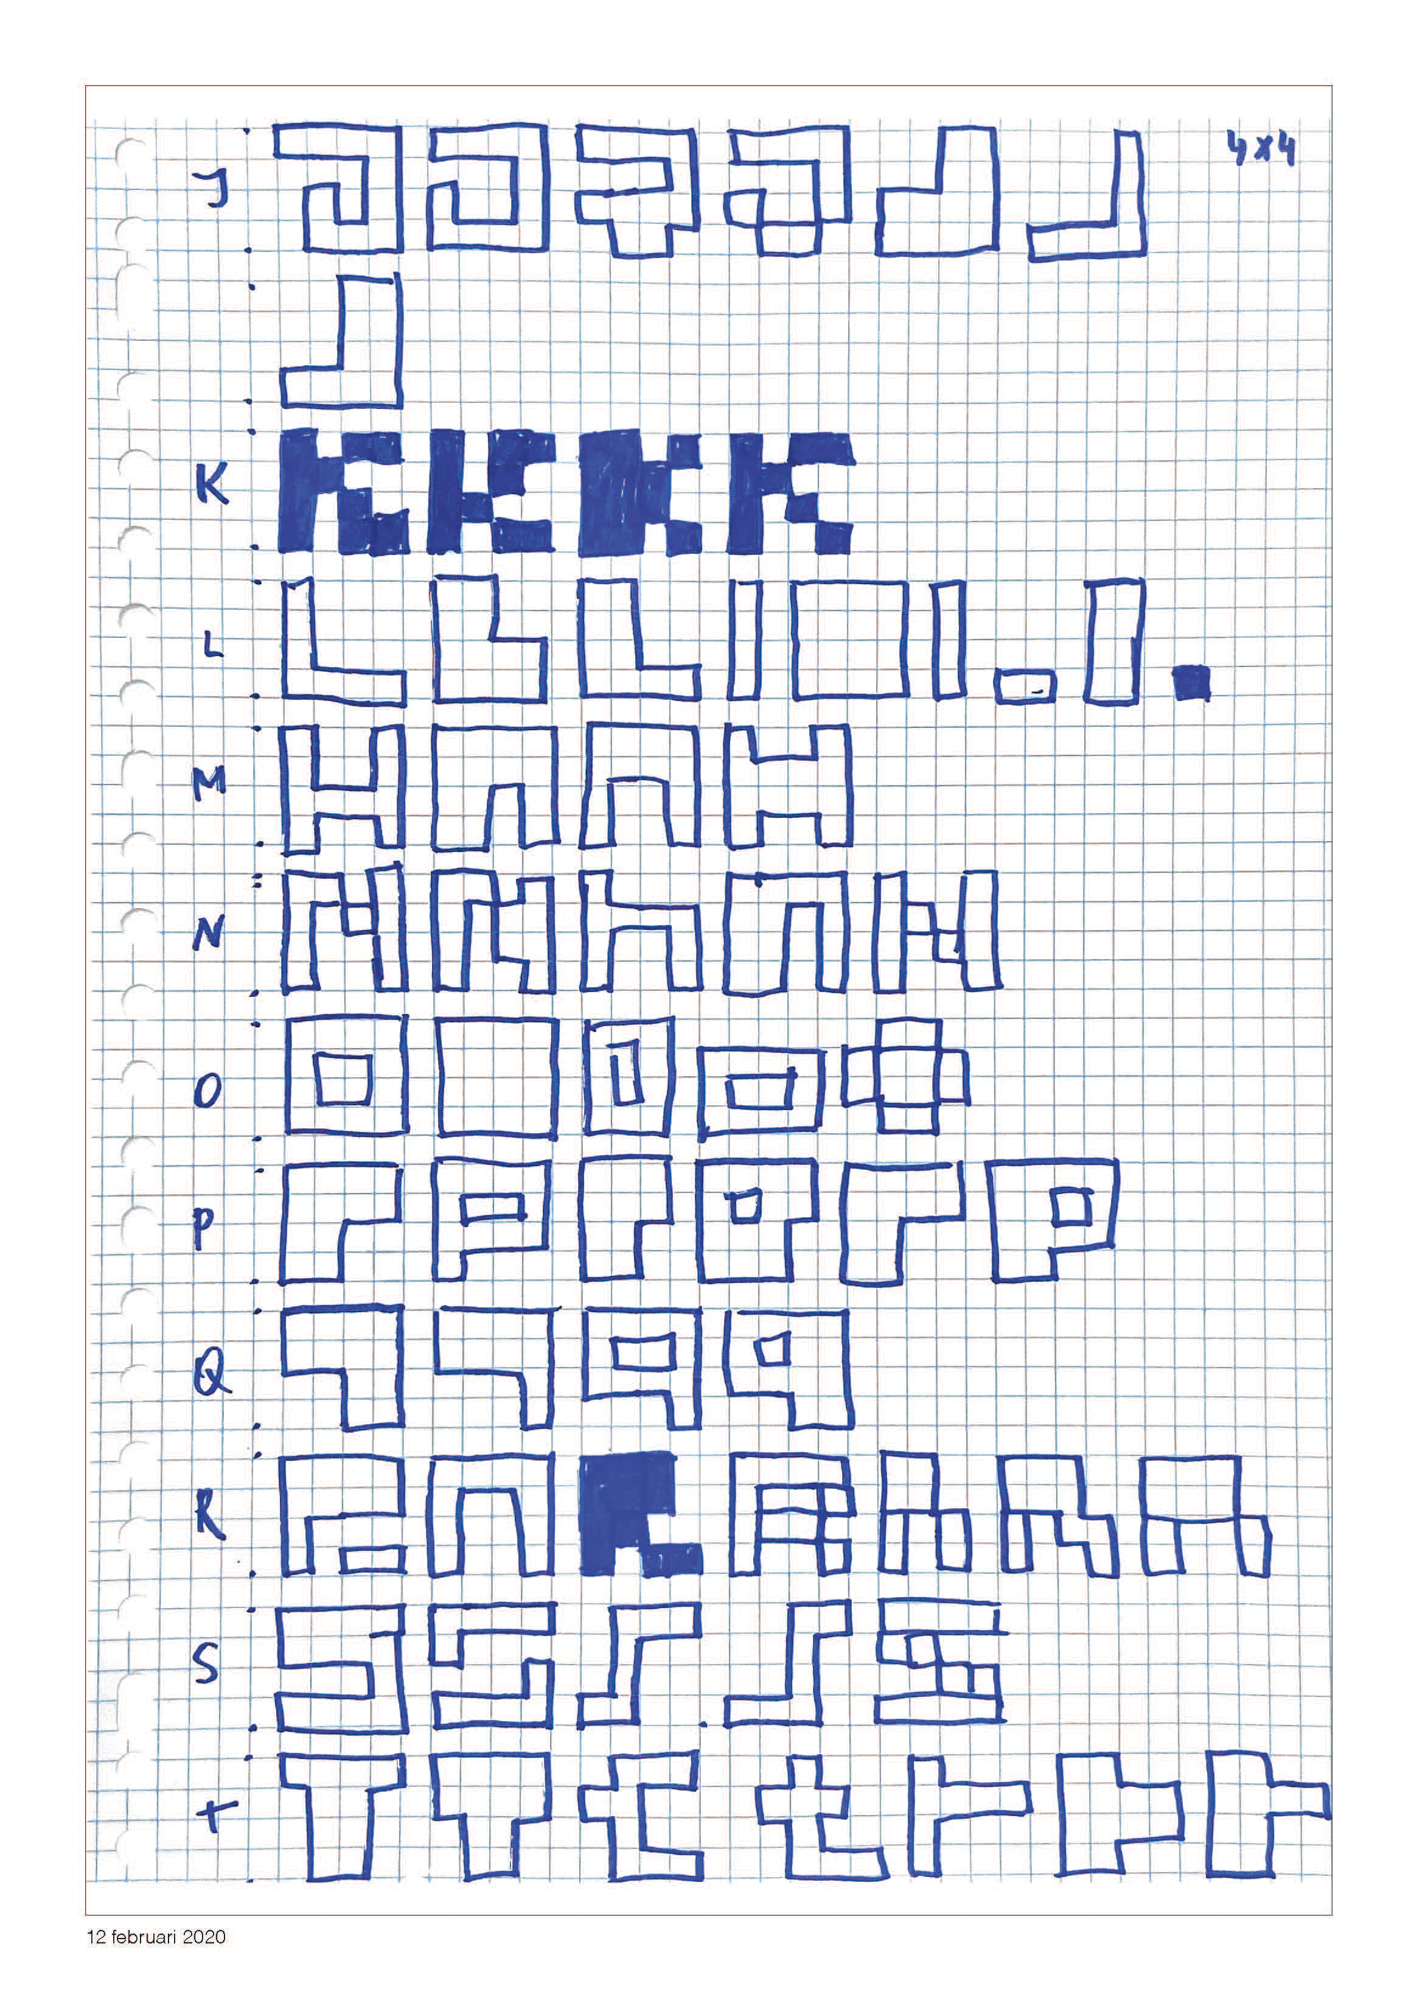 4x4
J
K
L
M
N
O
P
Q
R
S
t
12 februari 2020